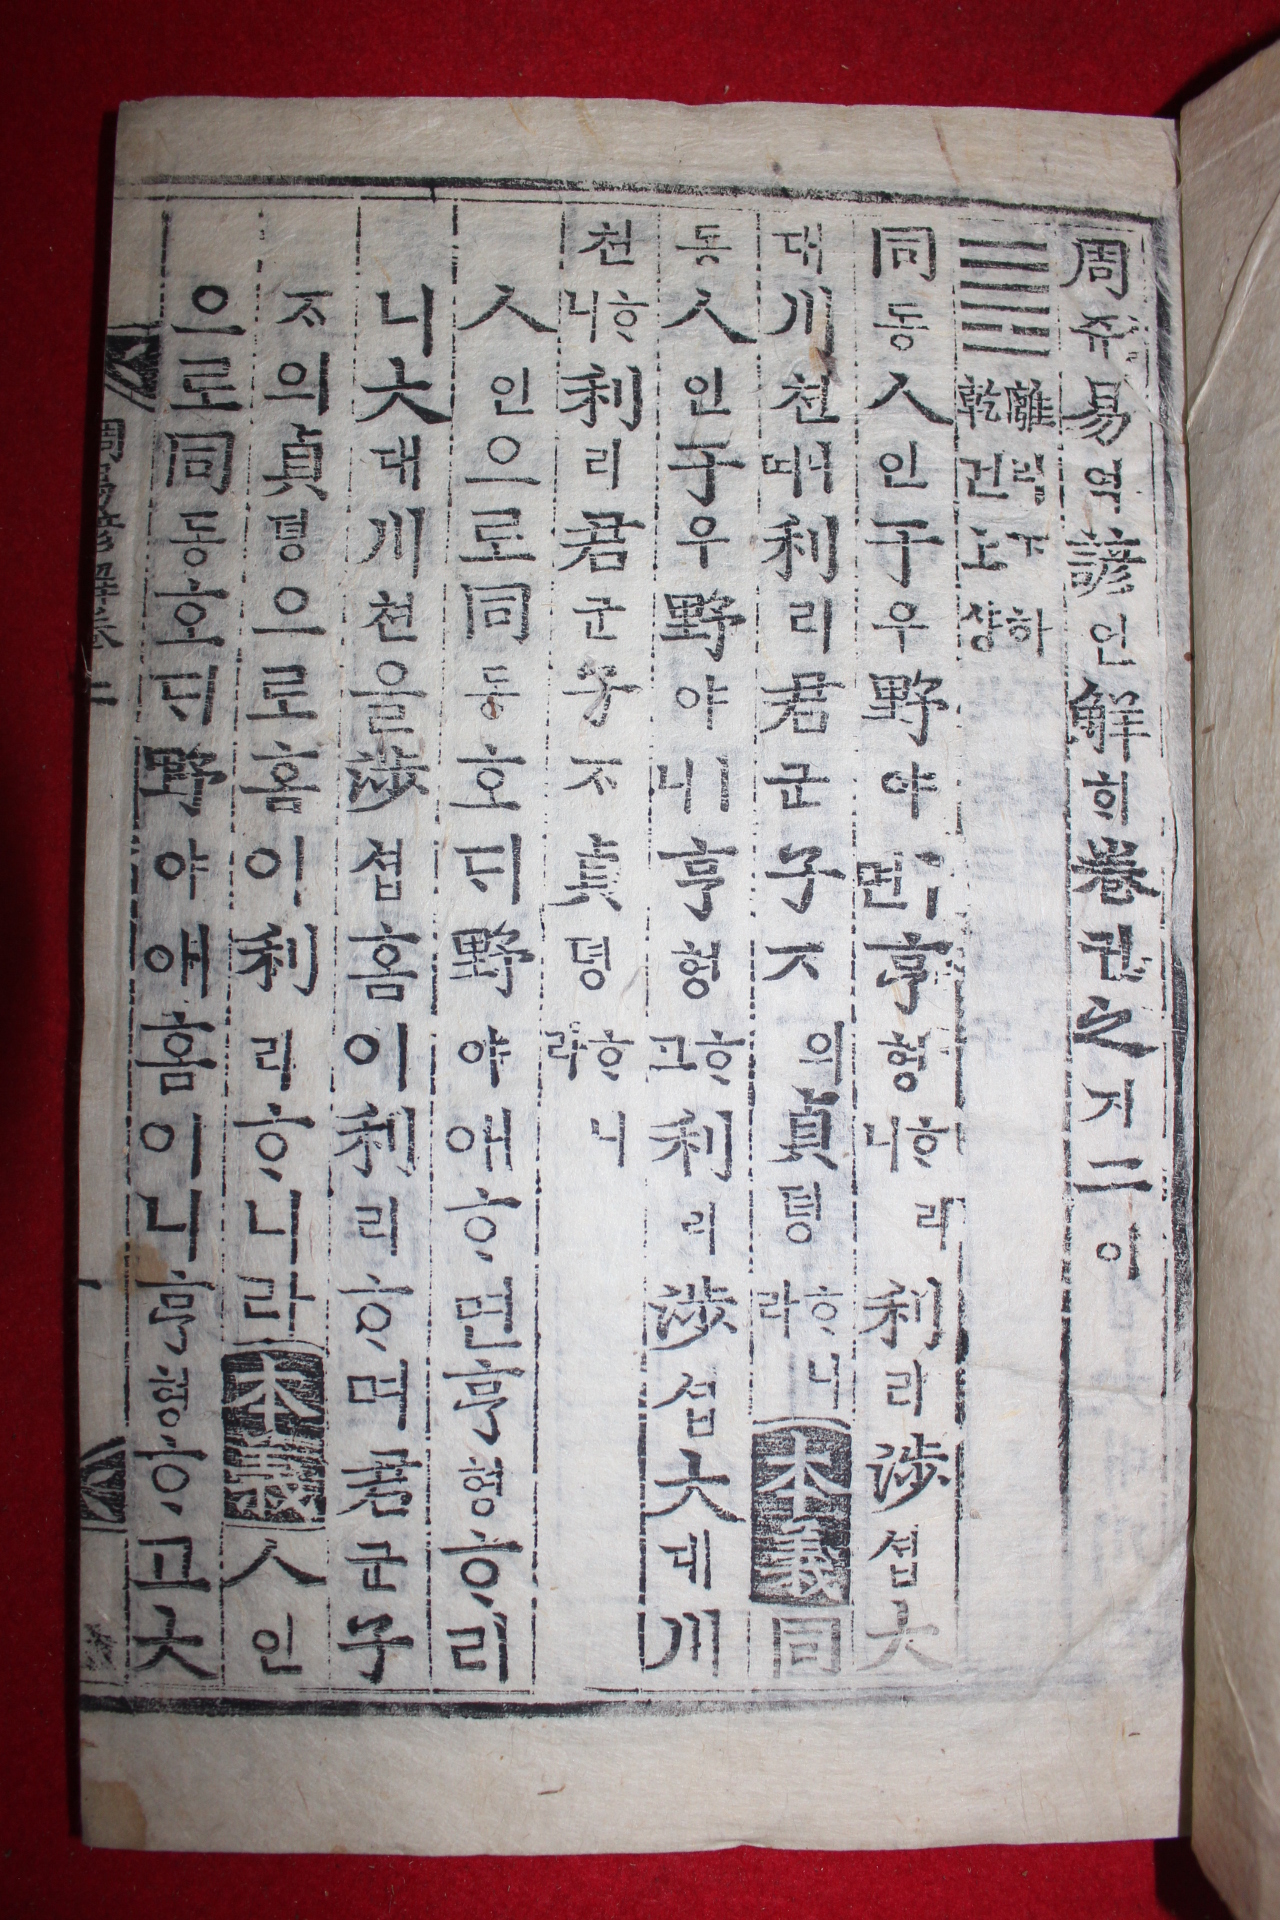 周쥬易역諺언解ᄒᆡ卷권之지二이
䷌離리下하乾건上샹
同동人인于우野야ㅣ면亨형ᄒᆞ리니利리涉셥大
대川쳔이며利리君군子ᄌᆞ의貞뎡ᄒᆞ니라本義同
동人인于우野야ㅣ니亨형ᄒᆞ고利리涉셥大대川
쳔ᄒᆞ니利리君군子ᄌᆞ貞뎡ᄒᆞ니라
人인으로同동호ᄃᆡ野야애ᄒᆞ면亨형ᄒᆞ리
니大대川쳔을涉셥홈이利리ᄒᆞ며君군子
ᄌᆞ의貞뎡으로홈이利리ᄒᆞ니라本義人인
으로同동호ᄃᆡ野야애홈이니亨형ᄒᆞ고大
周易諺解卷二 一